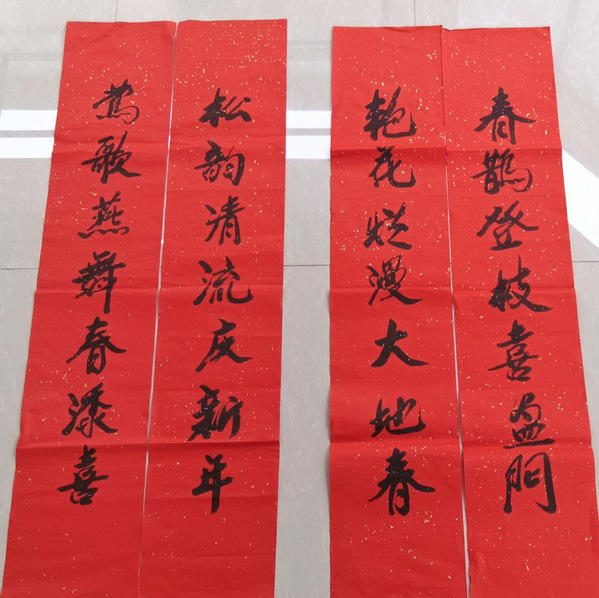 春鹊登枝喜盈門
艳花烂漫大地春
松韵清流庆新年
莺歌燕舞春添喜